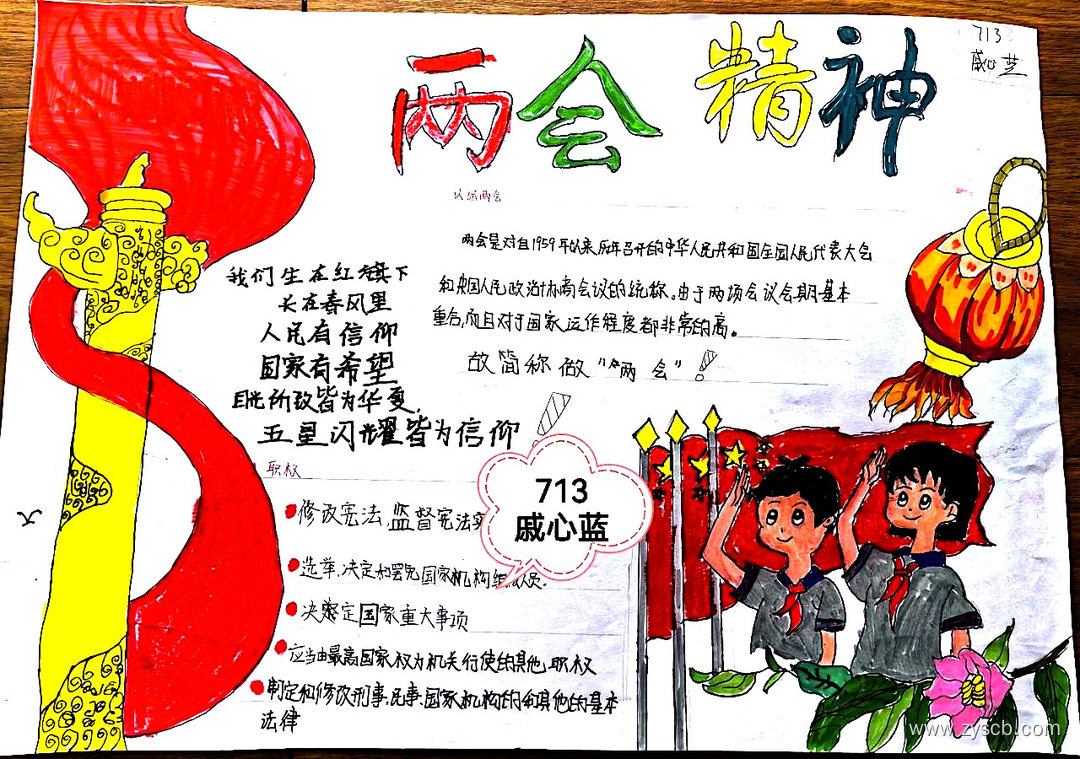 两会精神
713
戚心芝
认识两会
两会是对自1959年以来历年召开的中华人民共和国全国人民代表大会
和中国人民政治协商会议的统称。由于两项会议会期基本
重合,而且对于国家运作程度都非常的高。
故简称做“两会”
我们生在红旗下
长在春风里
人民有信仰
国家有希望
目光所致皆为华夏,
五星闪耀皆为信仰
职权
修改宪法,监督宪法实
713
戚心蓝
选举,决定和罢免国家机构组成人员.
决定国家重大事项
应当由最高国家权力机关行使的其他职权
制定和修改刑事,民事,国家机构的和其他的基本
法律
大
www.zyscb.com